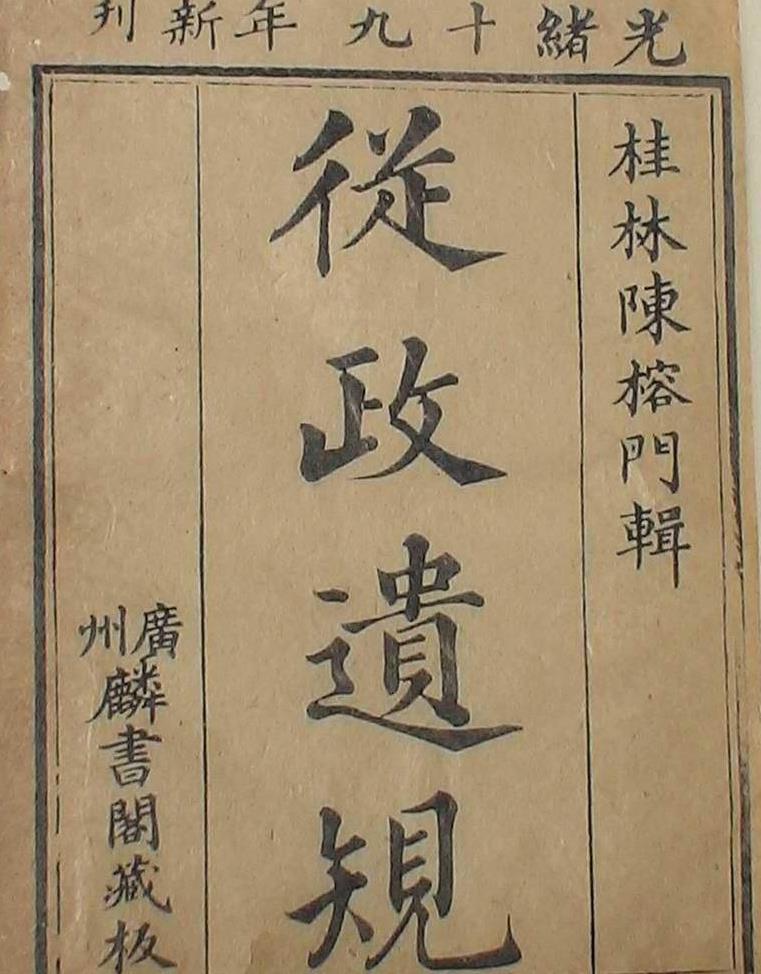 光緒十九年新刊
桂林陳榕門輯
從政遺規
廣州麟書閣藏板